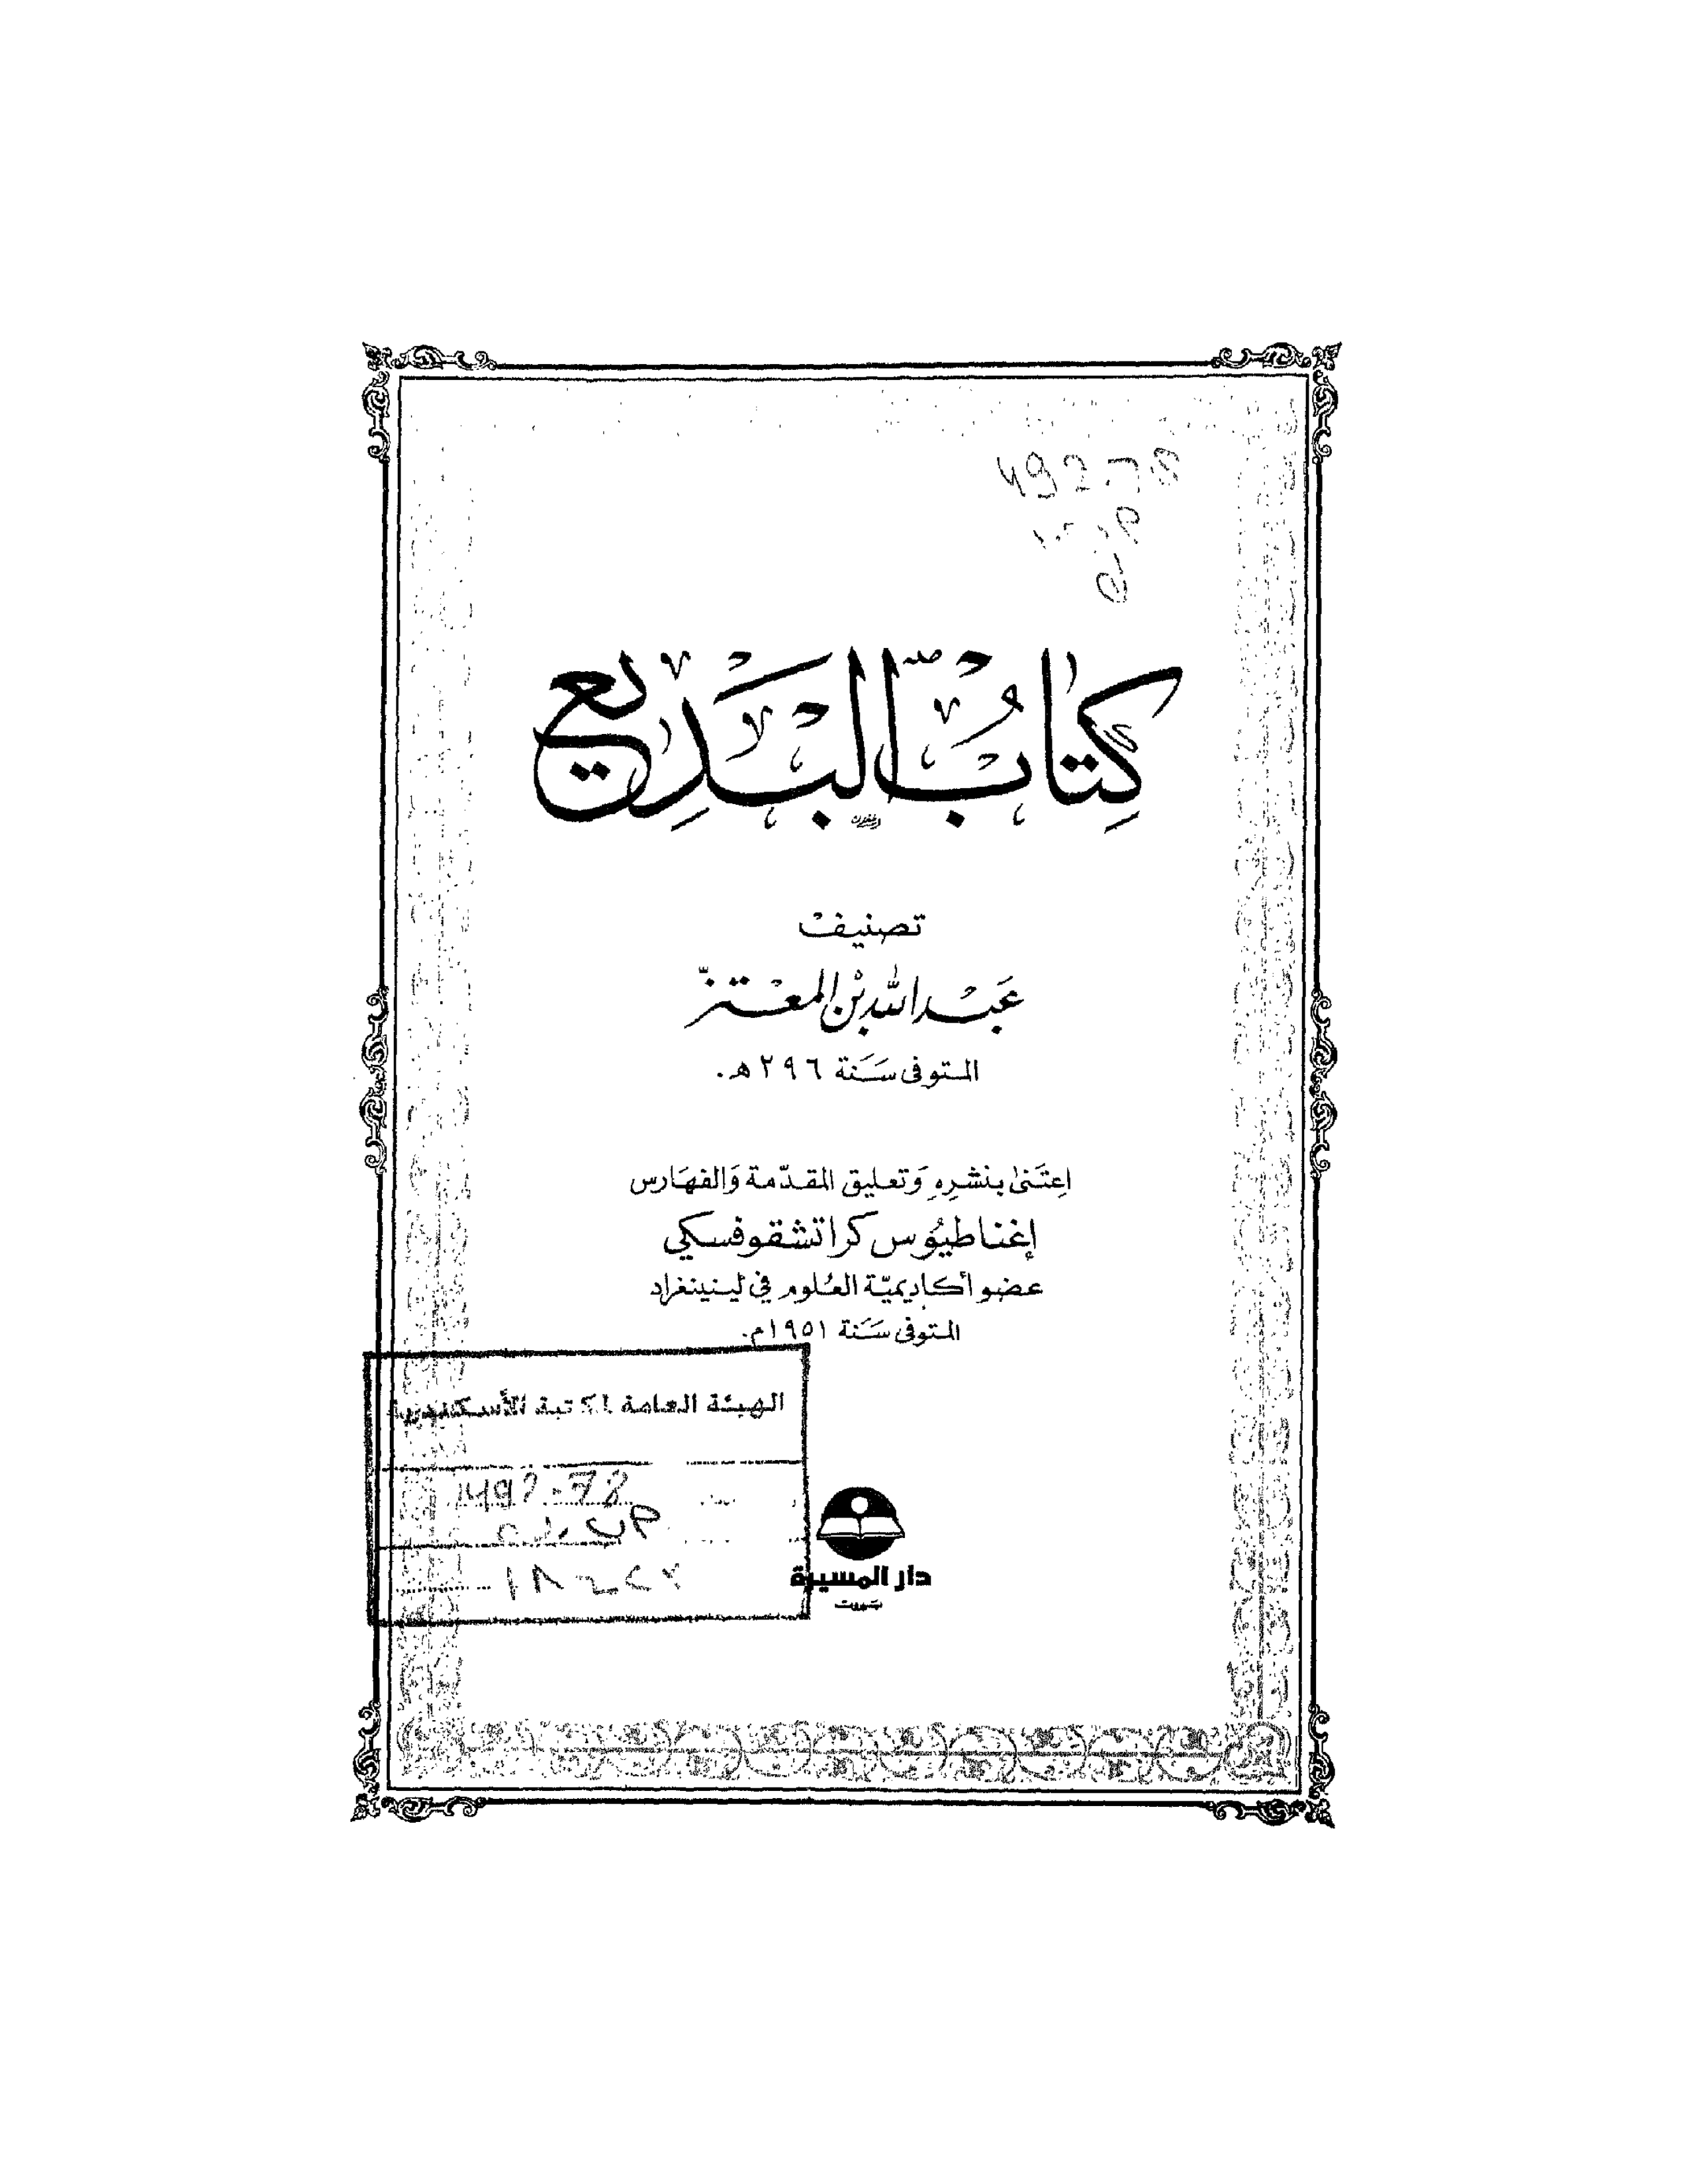 كِتَابُ البَدِيع
تصنيف
عَبْد الله بْن المعْتز
المتوفى سَنة ٢٩٦ هـ.
اعتَنىٰ بنشرِهِ وَتعليق المقدّمة وَالفهَارس
إغناطيُوس كراتشقوفسكي
عضو أكاديميّة العُلوم في لينينغراد
المتوفى سَنة ١٩٥١م.
الهيئة العامة لمكتبة الأسكندرية
492.78
دار المسيرة
بيروت